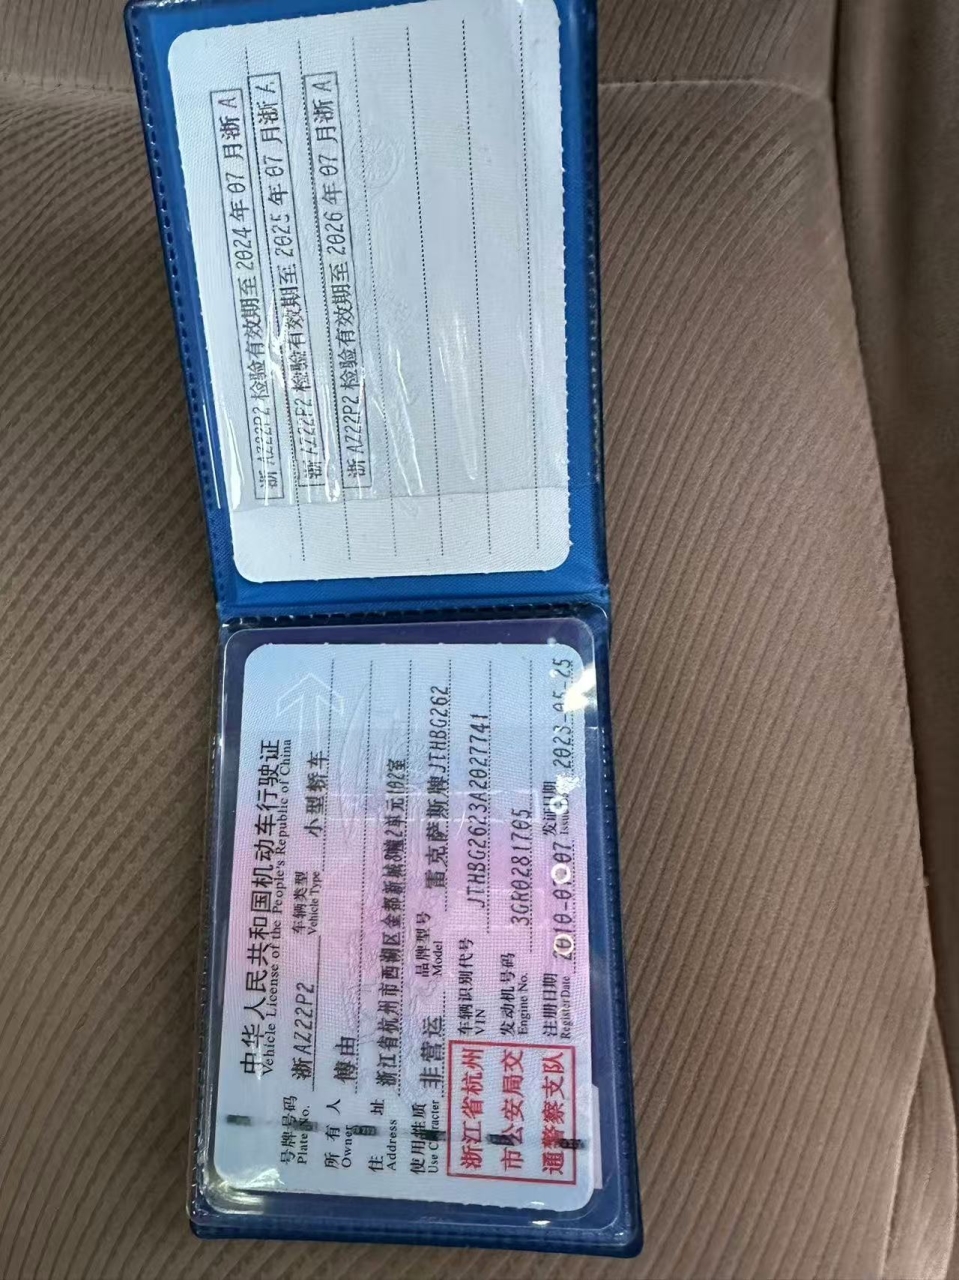 浙AZ22P2 检验有效期至 2024 年 07 月浙 A
浙AZ22P2 检验有效期至 2025 年 07 月浙 A
浙AZ22P2 检验有效期至 2026 年 07 月浙 A
中华人民共和国机动车行驶证
Vehicle License of the People's Republic of China
号牌号码 浙AZ22P2 车辆类型 小型轿车
Plate No. Vehicle Type
所有人 傅由
Owner
住址 浙江省杭州市西湖区金都新城8幢2单元102室
Address
使用性质 非营运 品牌型号 雷克萨斯牌JTHBG262
Use Character Model
浙江省杭州
市公安局交
通警察支队
车辆识别代号 JTHBG2623A2027741
VIN
发动机号码 3GR0281705
Engine No.
注册日期 发证日期 2023-05-25
Register Date